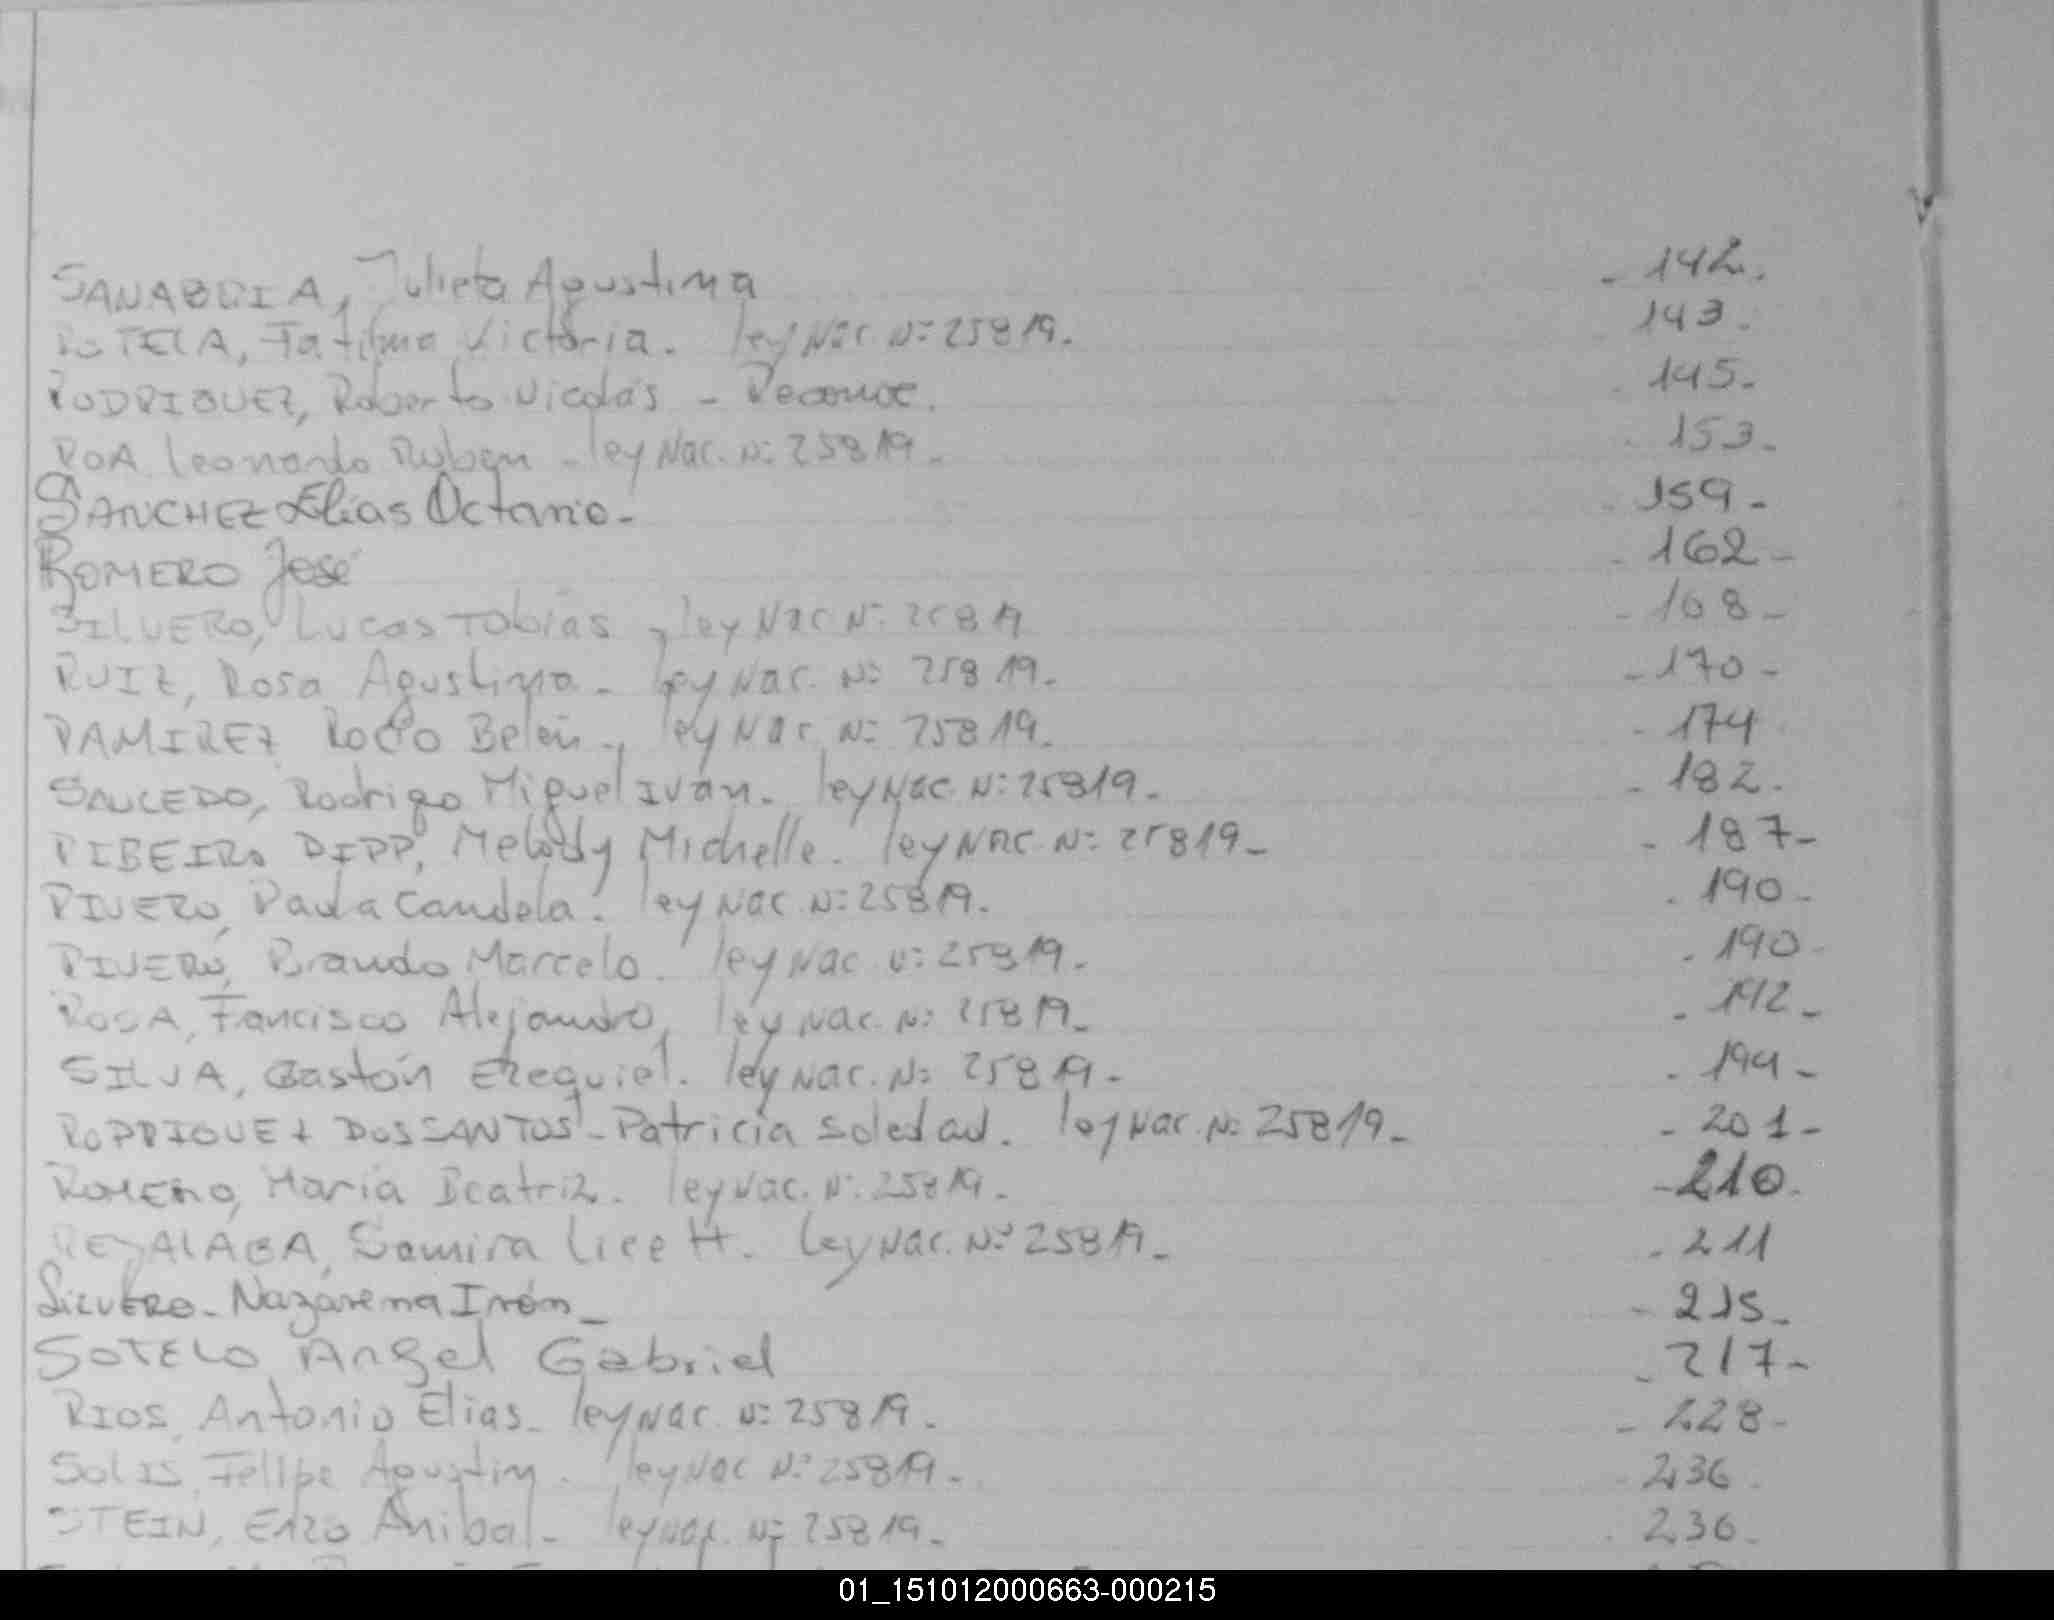 SANABRIA, Julieta Agustina - 142.
SOTELA, Fatima Victoria. ley Nac. Nº 25819. 143.
RODRIGUEZ, Roberto Nicolás - Reconoc. 145-
ROA Leonardo Ruben - ley Nac. Nº 25819. 153-
SANCHEZ Elias Octavio- 159-
ROMERO José 162-
SILVERO, Lucas Tobias - ley Nac Nº 25819 - 168-
RUIZ, Rosa Agustina - ley Nac. Nº 25819. - 170-
RAMIREZ Rocio Belén - ley Nac. Nº 25819. - 174
SAUCEDO, Rodrigo Miguel Iván. ley Nac. Nº 25819- - 182.
RIBEIRO DIPP, Melody Michelle. ley Nac. Nº 25819- - 187-
RIVERO, Paula Candela. ley Nac. Nº 25819. - 190-
RIVERO, Brando Marcelo. ley Nac. Nº 25819. - 190-
ROSA, Francisco Alejandro, ley Nac. Nº 25819- - 192-
SILVA, Gastón Ezequiel. ley Nac. Nº 25819- - 194-
RODRIGUEZ DOSSANTOS - Patricia Soledad. ley Nac. Nº 25819- - 201-
ROMERO, María Beatriz. ley Nac. Nº 25819. - 210.
REYALAGA, Samira Licett. Ley Nac. Nº 25819- - 211
SILVERO- Nazarena - 215-
SOTELO Angel Gabriel - 217-
RIOS, Antonio Elias- ley Nac. Nº 25819. - 228-
SOLIS, Felipe Agustin. ley Nac Nº 25819- 236.
STEIN, Enzo Anibal- ley Nac. Nº 25819- 236.
01_151012000663-000215